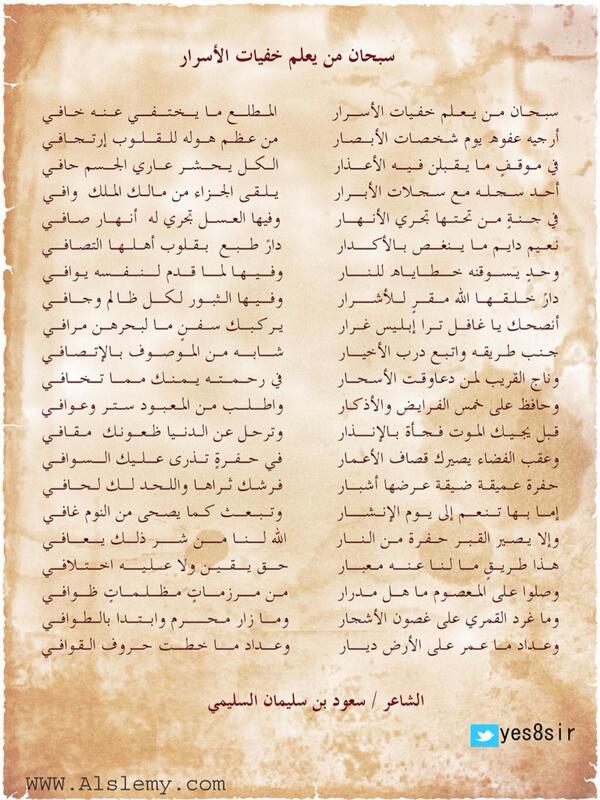 سبحان من يعلم خفيات الأسرار
سبحان من يعلم خفيات الأسرار المطلع ما يختفي عنه خافي
أرجيه عفوه يوم شخصات الأبصار من عظم هوله للقلوب إرتجافي
في موقفٍ ما يقبلن فيه الأعذار الكل يحشر عاري الجسم حافي
أحد سجله مع سجلات الأبرار يلقى الجزاء من مالك الملك وافي
في جنةٍ من تحتها تجري الأنهار وفيها العسل تجري له أنهار صافي
نعيم دايم ما ينغص بالأكدار دارٌ طبع بقلوب أهلها التصافي
وحدٍ يسوقنه خطاياه للنار وفيها لما قدم لنفسه يوافي
دارٌ خلقها الله مقرٍ للأشرار وفيها الثبور لكل ظالم وجافي
أنصحك يا غافل ترا إبليس غرار يركبك سفنٍ ما لبحرهن مرافي
جنب طريقه واتبع درب الأخيار شابه من الموصوف بالإتصافي
وناج القريب لمن دعاوقت الأسحار في رحمته يمنك مما تخافي
وحافظ على خمس الفرايض والأذكار واطلب من المعبود ستر وعوافي
قبل يجيك الموت فجأة بالإنذار وترحل عن الدنيا ظعونك مقافي
وعقب الفضاء يصيرك قصاف الأعمار في حفرةٍ تذرى عليك السوافي
حفرة عميقة ضيقة عرضها أشبار فرشك ثراها واللحد لك لحافي
إما بها تنعم إلى يوم الإنشار وتبعث كما يصحى من النوم غافي
وإلا يصير القبر حفرة من النار الله لنا من شر ذلك يعافي
هذا طريقٍ ما لنا عنه معبار حق يقين ولا عليه اختلافي
وصلوا على المعصوم ما هل مدرار من مرزماتٍ مظلماتٍ ظوافي
وما غرد القمري على غصون الأشجار وما زار محرم وابتدا بالطوافي
وعداد ما عمر على الأرض ديار وعداد ما خطت حروف القوافي
الشاعر / سعود بن سليمان السليمي
yes8sir
www.Alslemy.com